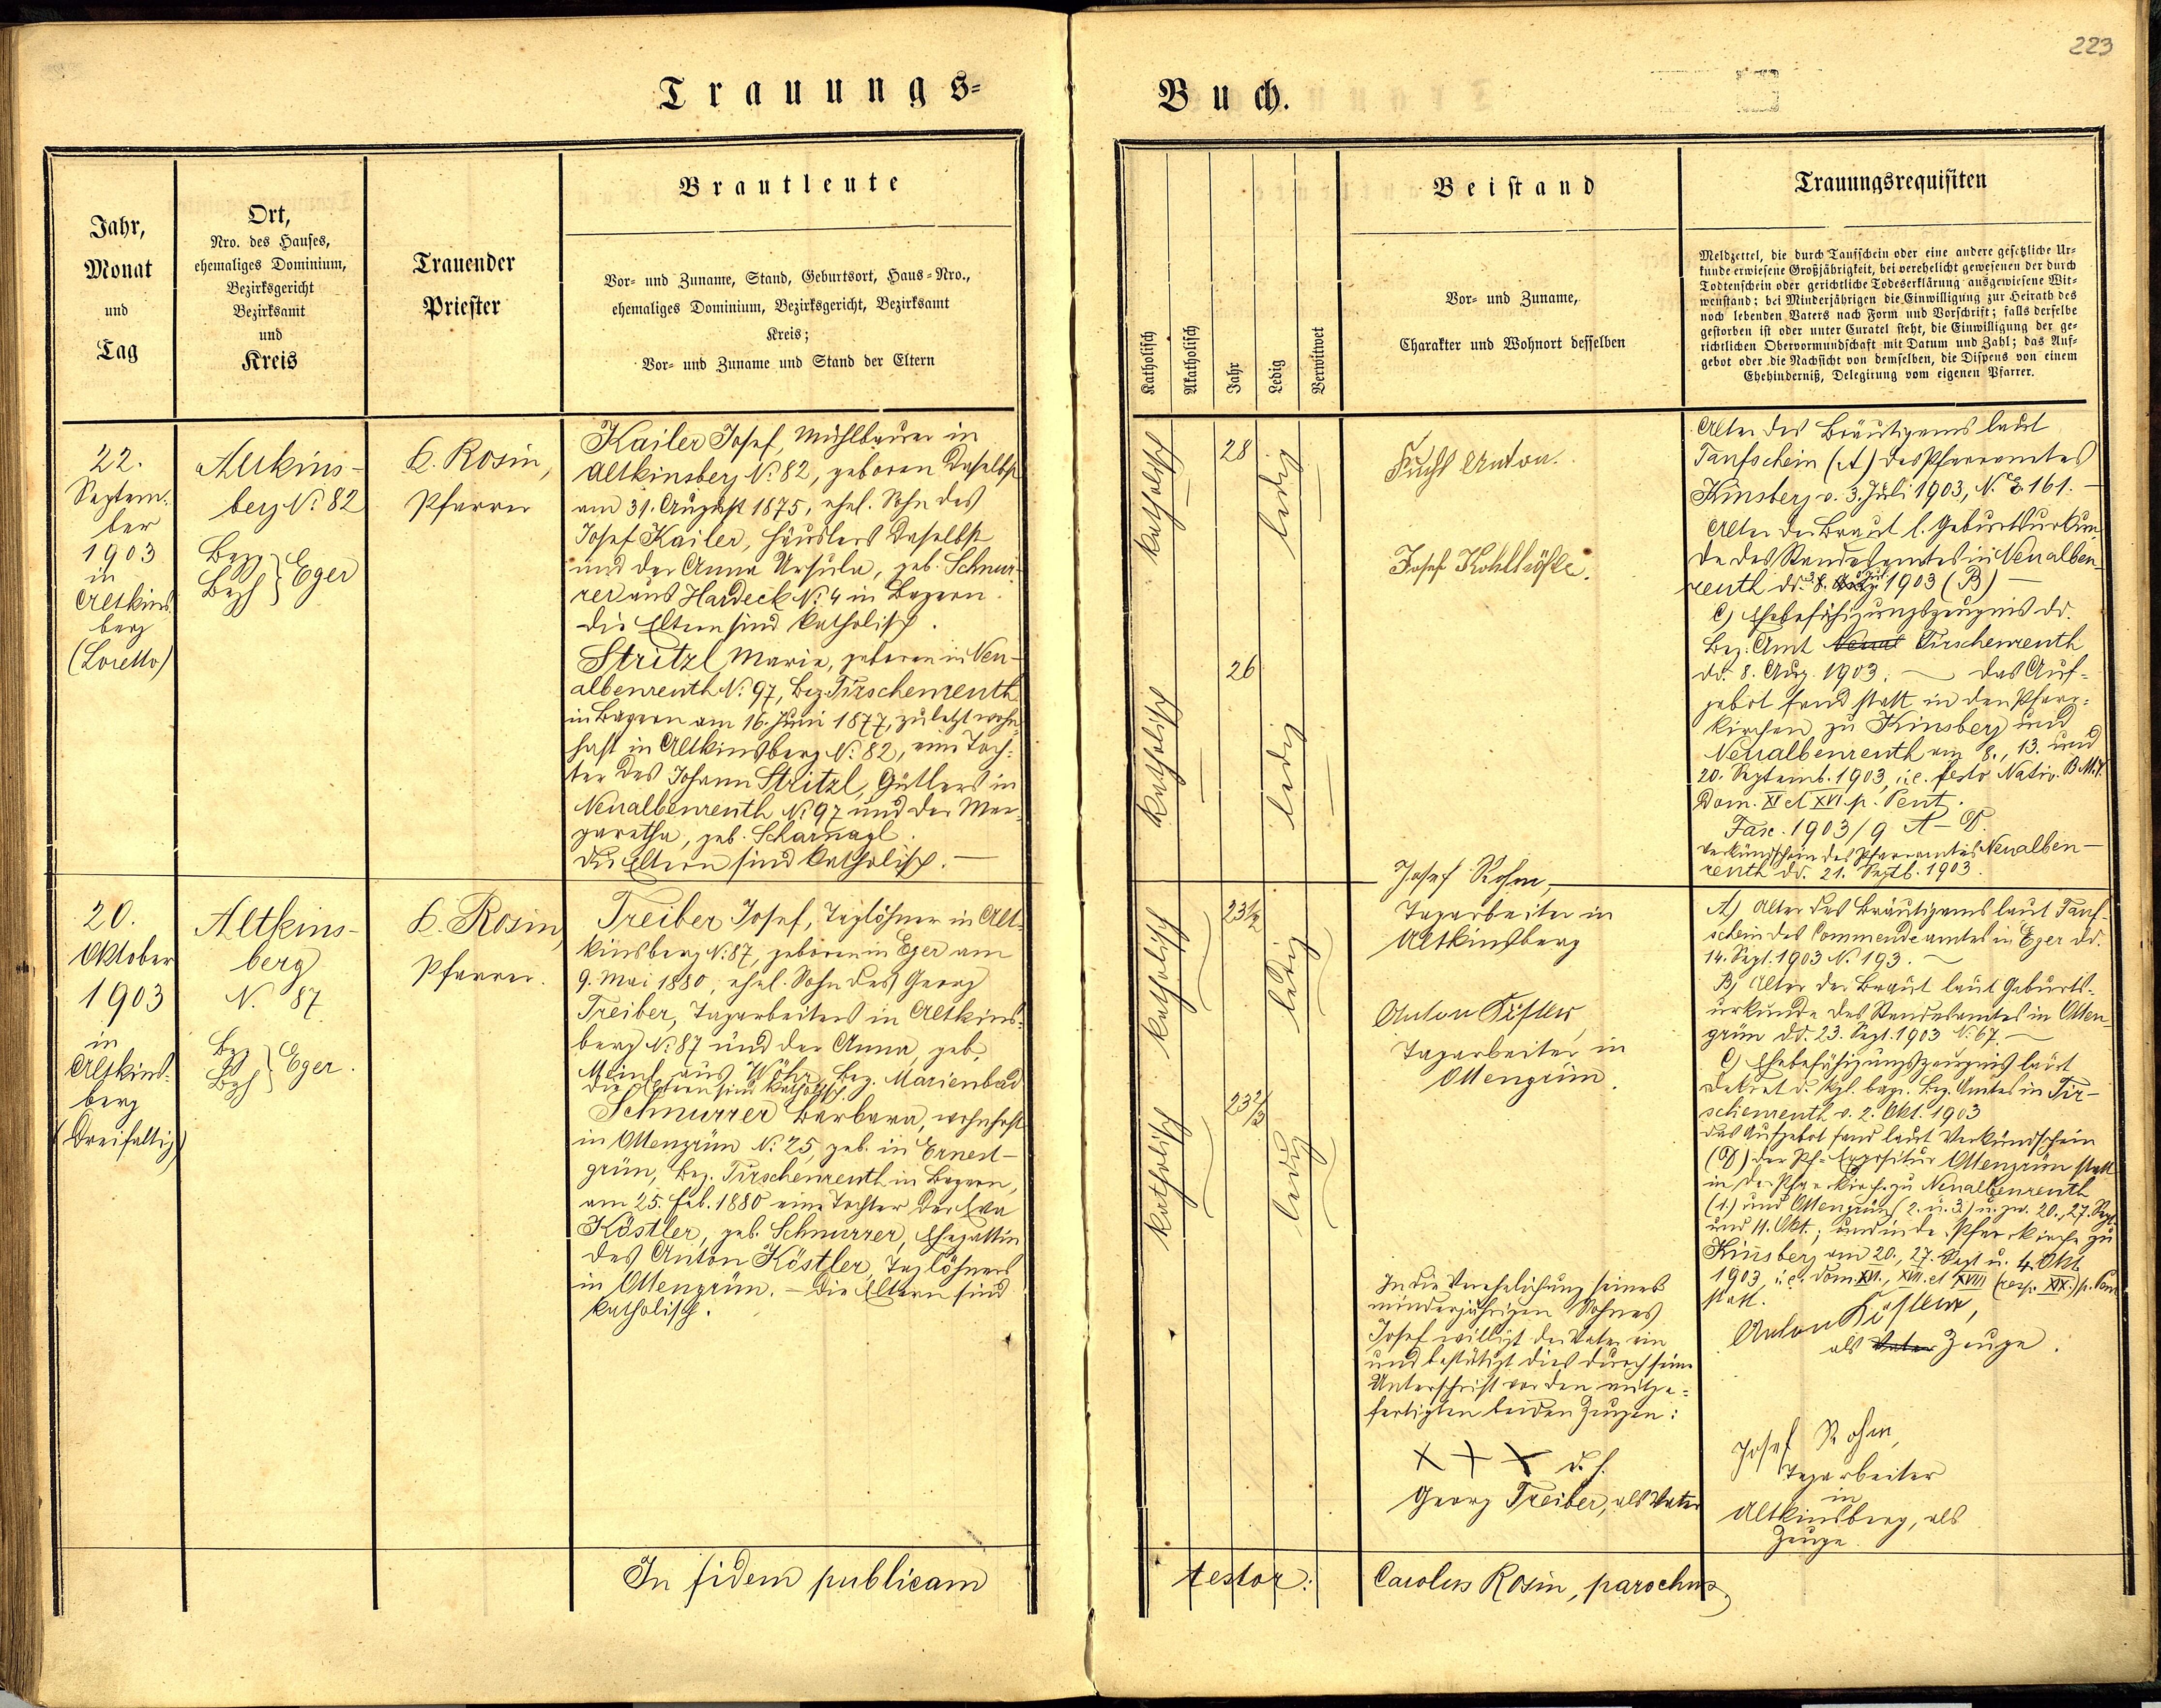 223
Trauungs-
Buch.
Jahr,
Monat
und
Tag
Ort,
Nro. des Hauses,
ehemaliges Dominium,
Bezirksgericht
Bezirksamt
und
Kreis
Trauender
Priester
Brautleute
Vor- und Zuname, Stand, Geburtsort, Haus-Nro.,
ehemaliges Dominium, Bezirksgericht, Bezirksamt
Kreis;
Vor- und Zuname und Stand der Eltern
Katholisch
Akatholisch
Jahr
Ledig
Verwitwet
Beistand
Vor- und Zuname,
Charakter und Wohnort desselben
Trauungsrequisiten
Meldzettel, die durch Taufschein oder eine andere gesetzliche Ur-
kunde erwiesene Großjährigkeit, bei verehelicht gewesenen der durch
Todtenschein oder gerichtliche Todeserklärung ausgewiesene Wit-
wenstand; bei Minderjährigen die Einwilligung zur Heirath des
noch lebenden Vaters nach Form und Vorschrift; falls derselbe
gestorben ist oder unter Curatel steht, die Einwilligung der ge-
richtlichen Obervormundschaft mit Datum und Zahl; das Auf-
gebot oder die Nachsicht von demselben, die Dispens von einem
Ehehinderniß, Delegirung vom eigenen Pfarrer.
22.
Septem-
ber
1903
in
Altkins-
berg
(Loretto)
Altkins-
berg N. 82
Bezg
Bezh } Eger
K. Rosin,
Pfarrer
Kailer Josef, Mühlbauer in
Altkinsberg N. 82, geboren daselbst
am 31. August 1875, ehel. Sohn des
Josef Kailer, Häuslers daselbst
und der Anna Ursula, geb. Schnur-
rer aus Hardeck N. 4 in Bayern.
Die Eltern sind katholisch.
Stritzl Maria, geboren in Neu-
albenreuth N. 97, Bez. Tirschenreuth
in Bayern am 16. Juni 1877, zuletzt wohn-
haft in Altkinsberg N. 82, eine Toch-
ter des Johann Stritzl, Gütlers in
Neualbenreuth N. 97 und der Mar-
garetha, geb. Scharnagl.
Die Eltern sind katholisch. —
katholisch
28
ledig
katholisch
26
ledig
Fuchs Anton.
Josef Kohl
Alter des Bräutigams laut
Taufschein (A) des Pfarramtes
Kinsberg v. 3. Juli 1903, N. E. 161. —
Alter der Braut l. Geburtsurkun-
de des Standesamtes in Neualben-
reuth dd. 1903 (B) —
C) Ehebefähigungszeugnis dd.
Bez. Amt Tirschenreuth
dd. 8. Aug. 1903. — Das Auf-
gebot fand statt in den Pfarr-
kirchen zu Kinsberg und
Neualbenreuth am 8., 13. und
20. Septemb. 1903, i. e. festo Nativ. B.M.V.
Dom. XV et XVI. p. Pent.
Fasc. 1903/9 A–D.
Verkündschein des Pfarramtes Neualben-
reuth dd. 21. Septb. 1903.
20.
Oktober
1903
in
Altkins-
berg
(Dreifaltig)
Altkins-
berg
N. 87
Bezg
Bezh } Eger.
K. Rosin,
Pfarrer.
Treiber Josef, Taglöhner in Alt-
kinsberg N. 87, geboren in Eger am
9. Mai 1880, ehel. Sohn des Georg
Treiber, Tagarbeiters in Altkins-
berg N. 87 und der Anna, geb.
Meinl aus Wöhr, Bez. Marienbad
Die Eltern sind katholisch.
Schnurrer Barbara, wohnhaft
in Ottengrün N. 25, geb. in Ernest-
grün, Bez. Tirschenreuth in Bayern,
am 25. Feb. 1880 eine Tochter der Eva
Köstler, geb. Schnurrer, Ehegattin
des Anton Köstler, Taglöhners
in Ottengrün. — Die Eltern sind
katholisch.
katholisch
23 1/2
ledig
katholisch
23 2/3
ledig
Josef Rohm,
Tagarbeiter in
Altkinsberg
Anton Kistler,
Tagarbeiter in
Ottengrün.
In die Verehelichung seines
minderjährigen Sohnes
Josef willigt der Vater ein
und bestätigt dies durch seine
Unterschrift vor den mitge-
fertigten beiden Zeugen:
X + X d. h.
Georg Treiber, als Vater
A) Alter des Bräutigams laut Tauf-
schein des Commendeamtes in Eger dd.
14. Sept. 1903 N. 193. —
B) Alter der Braut laut Geburts-
urkunde des Standesamtes in Otten-
grün dd. 23. Sept. 1903 N. 67. —
C) Ehebefähigungszeugnis laut
Dekret d. kgl. bayr. Bez. Amtes in Tir-
schenreuth v. 2. Okt. 1903
Das Aufgebot fand laut Verkündschein
(D) der Pf.-Expositur Ottengrün statt
in der Pfarrkirche zu Neualbenreuth
(1.) und Ottengrün (2. u. 3.) u. zw. 20., 27. Sept.
und 11. Okt.; und in der Pfarrkirche zu
Kinsberg am 20., 27. Sept u. 4. Okt
1903, i. e. Dom. XVI., XVII. et XVIII (resp. XIX.) p. Pent
statt.
Anton Kistler,
als Vater Zeuge.
Josef Rohm,
Tagarbeiter
in
Altkinsberg, als
Zeuge.
In fidem publicam
testor:
Carolus Rosin, parochus